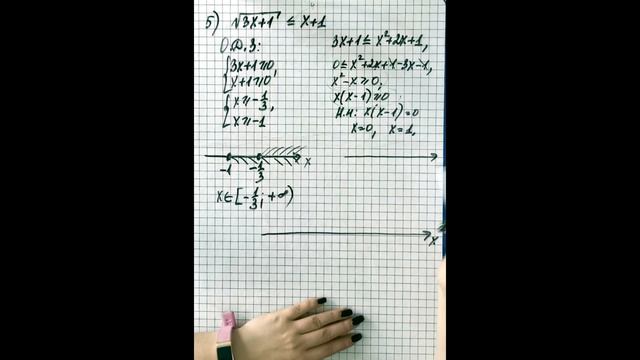 5) √3x+1 ≤ x+1
О.Д.З:
{3x+1≥0,
{x+1≥0;
{x≥-1/3,
{x≥-1
-1 -1/3 x
x∈[-1/3; +∞)
3x+1 ≤ x²+2x+1,
0 ≤ x²+2x+1-3x-1,
x²-x≥0,
x(x-1)≥0
Н.Н: x(x-1)=0
x=0, x=1,
x